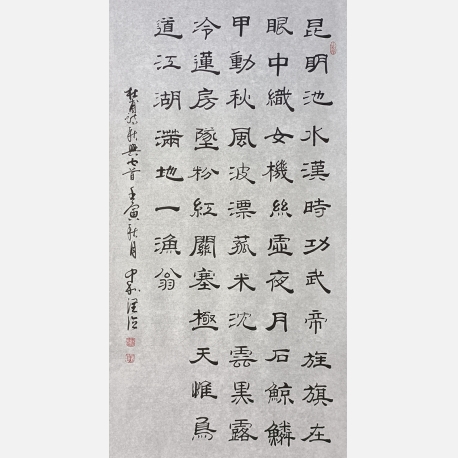 昆明池水漢時功武帝旌旗在
眼中織女機絲虛夜月石鯨鱗
甲動秋風波漂菰米沈雲黑露
冷蓮房墜粉紅關塞極天惟鳥
道江湖滿地一漁翁
杜甫詩秋興七首壬寅秋月